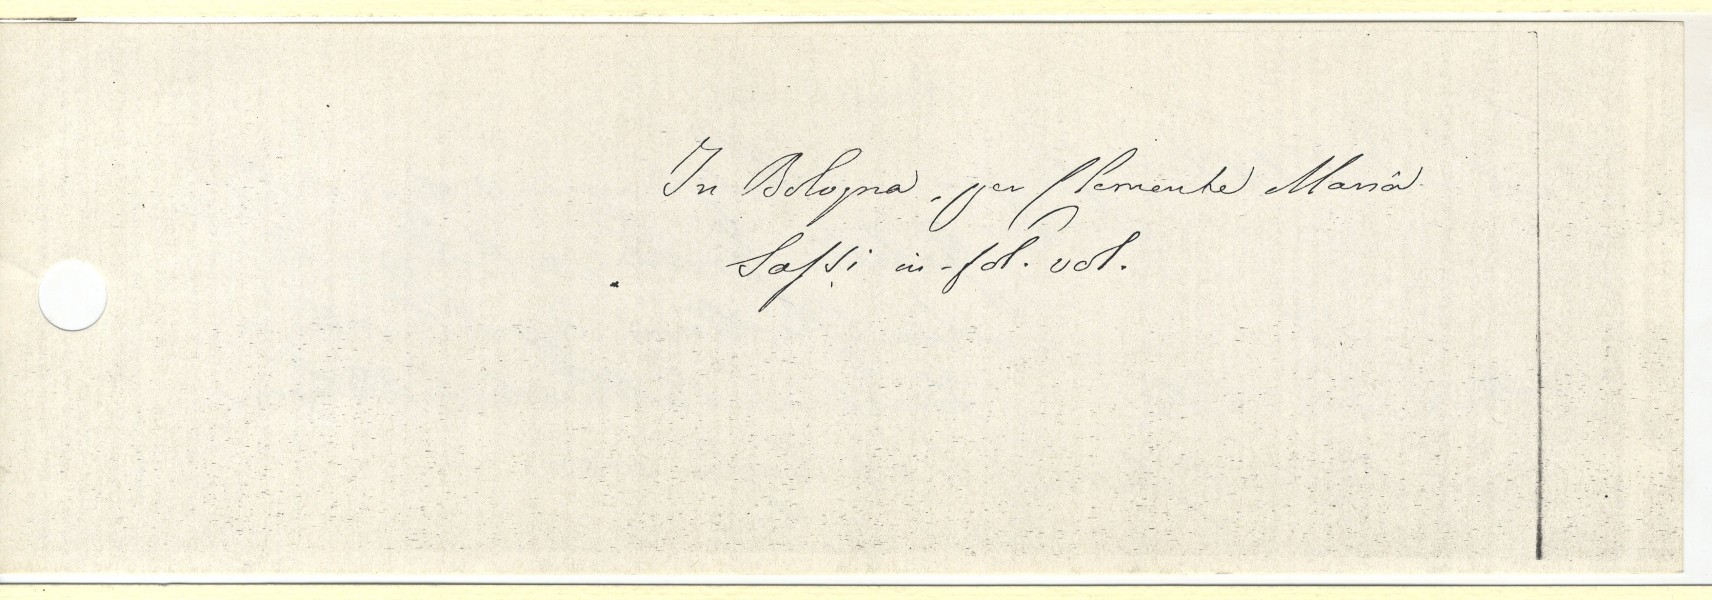 In Bologna, per Clemente Maria
Sassi in-fol. vol.